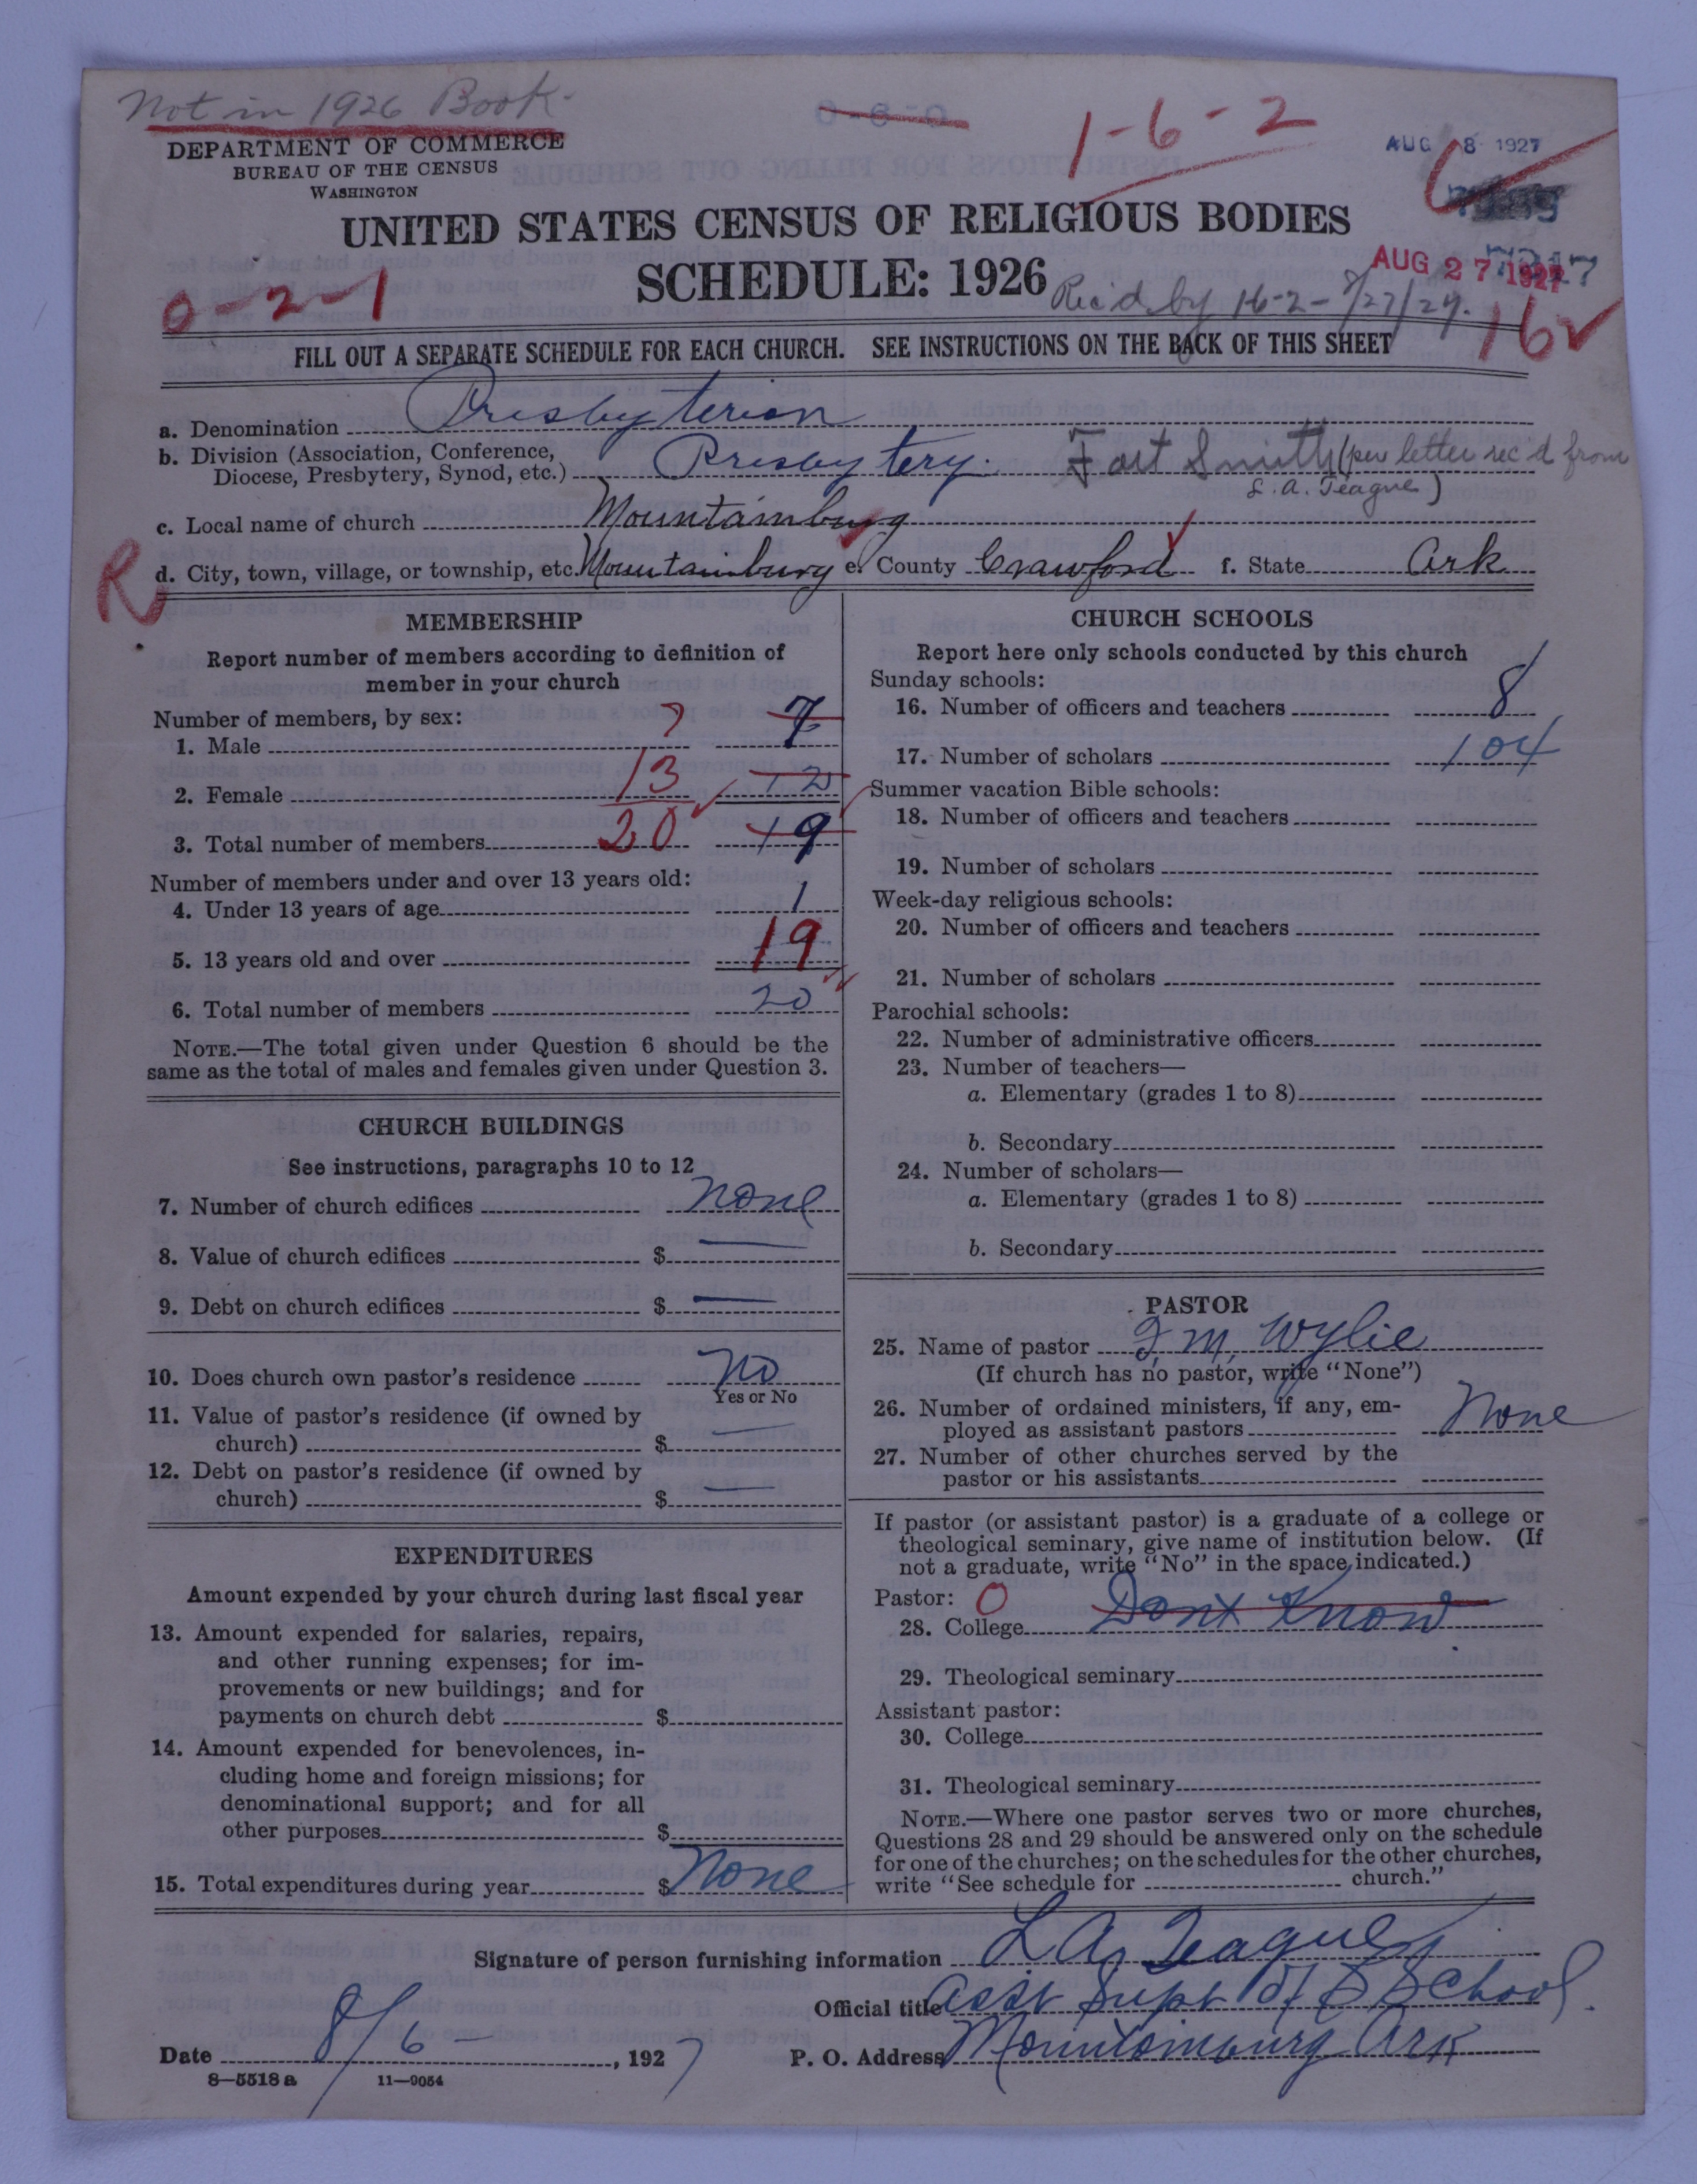 Not in 1926 Book
0-6-0
1-6-2
AUG 8 1927
DEPARTMENT OF COMMERCE
BUREAU OF THE CENSUS
WASHINGTON
UNITED STATES CENSUS OF RELIGIOUS BODIES
SCHEDULE: 1926
AUG 27 1927
7217
0-2-1
Rec'd by 16-2-8/27/27.
16
FILL OUT A SEPARATE SCHEDULE FOR EACH CHURCH. SEE INSTRUCTIONS ON THE BACK OF THIS SHEET
a. Denomination Presbyterian
b. Division (Association, Conference, Diocese, Presbytery, Synod, etc.) Presbytery. Fort Smith (per letter rec'd from
L.A. Teague)
c. Local name of church Mountainburg
R
d. City, town, village, or township, etc. Mountainburg e. County Crawford f. State Ark
MEMBERSHIP
Report number of members according to definition of
member in your church
Number of members, by sex:
1. Male 7 7
2. Female 13 12
3. Total number of members 20 19
Number of members under and over 13 years old:
4. Under 13 years of age 1
5. 13 years old and over 19
6. Total number of members 20
NOTE.—The total given under Question 6 should be the
same as the total of males and females given under Question 3.
CHURCH BUILDINGS
See instructions, paragraphs 10 to 12
7. Number of church edifices none
8. Value of church edifices $ —
9. Debt on church edifices $ —
10. Does church own pastor's residence No
Yes or No
11. Value of pastor's residence (if owned by
church) $ —
12. Debt on pastor's residence (if owned by
church) $ —
EXPENDITURES
Amount expended by your church during last fiscal year
13. Amount expended for salaries, repairs,
and other running expenses; for im-
provements or new buildings; and for
payments on church debt $
14. Amount expended for benevolences, in-
cluding home and foreign missions; for
denominational support; and for all
other purposes $
15. Total expenditures during year $ None
CHURCH SCHOOLS
Report here only schools conducted by this church
Sunday schools:
16. Number of officers and teachers 8
17. Number of scholars 104
Summer vacation Bible schools:
18. Number of officers and teachers
19. Number of scholars
Week-day religious schools:
20. Number of officers and teachers
21. Number of scholars
Parochial schools:
22. Number of administrative officers
23. Number of teachers—
a. Elementary (grades 1 to 8)
b. Secondary
24. Number of scholars—
a. Elementary (grades 1 to 8)
b. Secondary
PASTOR
25. Name of pastor J. M. Wylie
(If church has no pastor, write "None")
26. Number of ordained ministers, if any, em-
ployed as assistant pastors None
27. Number of other churches served by the
pastor or his assistants
If pastor (or assistant pastor) is a graduate of a college or
theological seminary, give name of institution below. (If
not a graduate, write "No" in the space indicated.)
Pastor: 0
28. College Dont Know
29. Theological seminary
Assistant pastor:
30. College
31. Theological seminary
NOTE.—Where one pastor serves two or more churches,
Questions 28 and 29 should be answered only on the schedule
for one of the churches; on the schedules for the other churches,
write "See schedule for church."
Signature of person furnishing information L A Teague
Official title asst Supt of S School.
Date 8/6 —, 1927 P. O. Address Mountainburg Ark
8—5518 a 11—9054